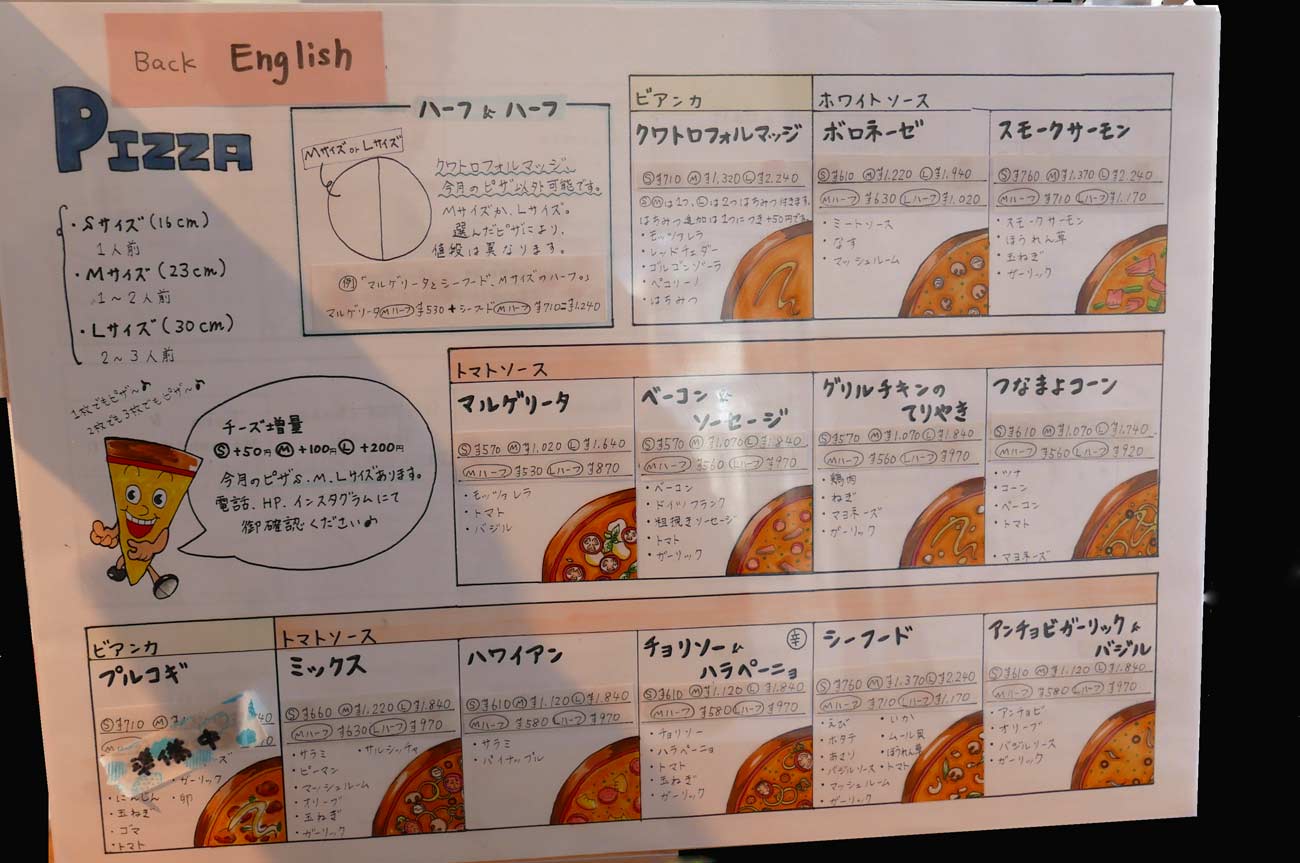 Back English
PIZZA
・Sサイズ(16cm)
1人前
・Mサイズ(23cm)
1～2人前
・Lサイズ(30cm)
2～3人前
ハーフ&ハーフ
MサイズorLサイズ
クワトロフォルマッジ、
今月のピザ以外可能です。
Mサイズか、Lサイズ。
選んだピザにより、
値段は異なります。
例 「マルゲリータとシーフード、Mサイズのハーフ。」
マルゲリータMハーフ¥530+シーフードMハーフ¥710=¥1.240
ビアンカ
クワトロフォルマッジ
S¥710 M¥1.320 L¥2.240
S、Mは1つ、Lは2つはちみつ付きます。
はちみつ追加は1つにつき+50円です。
・モッツァレラ
・レッドチェダー
・ゴルゴンゾーラ
・ペコリーノ
・はちみつ
ホワイトソース
ボロネーゼ
S¥610 M¥1.220 L¥1.940
Mハーフ¥630 Lハーフ¥1.020
・ミートソース
・なす
・マッシュルーム
スモークサーモン
S¥760 M¥1.370 L¥2.240
Mハーフ¥710 Lハーフ¥1.170
・スモークサーモン
・ほうれん草
・玉ねぎ
・ガーリック
1枚でもピザ～♪
2枚でも3枚でもピザ～♪
チーズ増量
S+50円 M+100円 L+200円
今月のピザS.M.Lサイズあります。
電話、HP、インスタグラムにて
御確認ください♪
トマトソース
マルゲリータ
S¥570 M¥1.020 L¥1.640
Mハーフ¥530 Lハーフ¥870
・モッツァレラ
・トマト
・バジル
ベーコン&
ソーセージ
S¥570 M¥1.070 L¥1.840
Mハーフ¥560 Lハーフ¥970
・ベーコン
・ドイツフランク
・粗挽きソーセージ
・トマト
・ガーリック
グリルチキンの
てりやき
S¥570 M¥1.070 L¥1.840
Mハーフ¥560 Lハーフ¥970
・鶏肉
・ねぎ
・マヨネーズ
・ガーリック
つなまよコーン
S¥610 M¥1.070 L¥1.740
Mハーフ¥560 Lハーフ¥920
・ツナ
・コーン
・ベーコン
・トマト
・マヨネーズ
ビアンカ
プルコギ
S¥710
準備中
・ガーリック
・にんじん ・卵
・玉ねぎ
・ゴマ
・トマト
トマトソース
ミックス
S¥660 M¥1.220 L¥1.840
Mハーフ¥630 Lハーフ¥970
・サラミ ・サルシッチャ
・ピーマン
・マッシュルーム
・オリーブ
・玉ねぎ
・ガーリック
ハワイアン
S¥610 M¥1.120 L¥1.840
Mハーフ¥580 Lハーフ¥970
・サラミ
・パイナップル
チョリソー& 辛
ハラペーニョ
S¥610 M¥1.120 L¥1.840
Mハーフ¥580 Lハーフ¥970
・チョリソー
・ハラペーニョ
・トマト
・玉ねぎ
・ガーリック
シーフード
S¥760 M¥1.370 L¥2.240
Mハーフ¥710 Lハーフ¥1.170
・えび ・いか
・ホタテ ・ムール貝
・あさり ・ほうれん草
・バジルソース ・トマト
・マッシュルーム
・ガーリック
アンチョビガーリック&
バジル
S¥610 M¥1.120 L¥1.840
Mハーフ¥580 Lハーフ¥970
・アンチョビ
・オリーブ
・バジルソース
・ガーリック